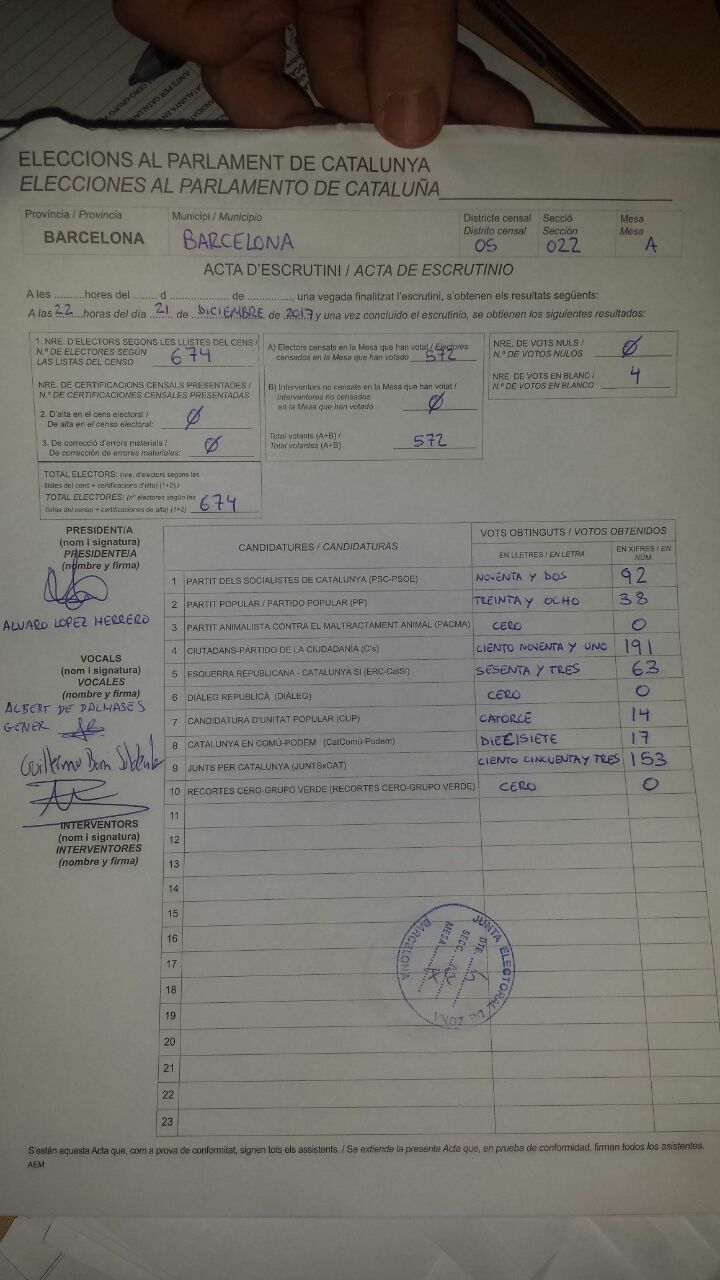 ELECCIONS AL PARLAMENT DE CATALUNYA
ELECCIONES AL PARLAMENTO DE CATALUÑA
Provincia / Provincia
BARCELONA
Municipi / Municipio
BARCELONA
Districte censal
Distrito censal
05
Secció
Sección
022
Mesa
Mesa
A
ACTA D'ESCRUTINI / ACTA DE ESCRUTINIO
A les ..........hores del ........ d .................... de ..............., una vegada finalitzat l'escrutini, s'obtenen els resultats següents:
A las 22 horas del día 21 de DICIEMBRE de 2017 y una vez concluido el escrutinio, se obtienen los siguientes resultados:
1. NRE. D'ELECTORS SEGONS LES LLISTES DEL CENS /
N.º DE ELECTORES SEGÚN
LAS LISTAS DEL CENSO 674
NRE. DE CERTIFICACIONS CENSALS PRESENTADES /
N.º DE CERTIFICACIONES CENSALES PRESENTADAS
2. D'alta en el cens electoral /
De alta en el censo electoral: Ø
3. De correcció d'errors materials /
De corrección de errores materiales: Ø
TOTAL ELECTORS: (nre. d'electors segons les
llistes del cens + certificacions d'alta) (1+2) /
TOTAL ELECTORES: (nº electores según las
listas del censo + certificaciones de alta) (1+2) 674
A) Electors censats en la Mesa que han votat / Electores
censados en la Mesa que han votado 572
B) Interventors no censats en la Mesa que han votat /
Interventores no censados
en la Mesa que han votado Ø
Total votants (A+B) /
Total votantes (A+B) 572
NRE. DE VOTS NULS /
N.º DE VOTOS NULOS Ø
NRE. DE VOTS EN BLANC /
N.º DE VOTOS EN BLANCO 4
PRESIDENT/A
(nom i signatura)
PRESIDENTE/A
(nombre y firma)
ALVARO LOPEZ HERRERO
VOCALS
(nom i signatura)
VOCALES
(nombre y firma)
ALBERT DE DALMASES
GENER
Guillermo
INTERVENTORS
(nom i signatura)
INTERVENTORES
(nombre y firma)
CANDIDATURES / CANDIDATURAS
VOTS OBTINGUTS / VOTOS OBTENIDOS
EN LLETRES / EN LETRA
EN XIFRES / EN NÚM.
1 PARTIT DELS SOCIALISTES DE CATALUNYA (PSC-PSOE) NOVENTA Y DOS 92
2 PARTIT POPULAR / PARTIDO POPULAR (PP) TREINTA Y OCHO 38
3 PARTIT ANIMALISTA CONTRA EL MALTRACTAMENT ANIMAL (PACMA) CERO 0
4 CIUTADANS-PARTIDO DE LA CIUDADANÍA (C's) CIENTO NOVENTA Y UNO 191
5 ESQUERRA REPUBLICANA - CATALUNYA SÍ (ERC-CatSí) SESENTA Y TRES 63
6 DIÀLEG REPUBLICÀ (DIÀLEG) CERO 0
7 CANDIDATURA D'UNITAT POPULAR (CUP) CATORCE 14
8 CATALUNYA EN COMÚ-PODEM (CatComú-Podem) DIECISIETE 17
9 JUNTS PER CATALUNYA (JUNTSxCAT) CIENTO CINCUENTA Y TRES 153
10 RECORTES CERO-GRUPO VERDE (RECORTES CERO-GRUPO VERDE) CERO 0
11
12
13
14
15
16
17
18
19
20
21
22
23
JUNTA ELECTORAL DE ZONA
BARCELONA
DTE.
SECC.
MESA
S'estén aquesta Acta que, com a prova de conformitat, signen tots els assistents. / Se extiende la presente Acta que, en prueba de conformidad, firman todos los asistentes.
AEM